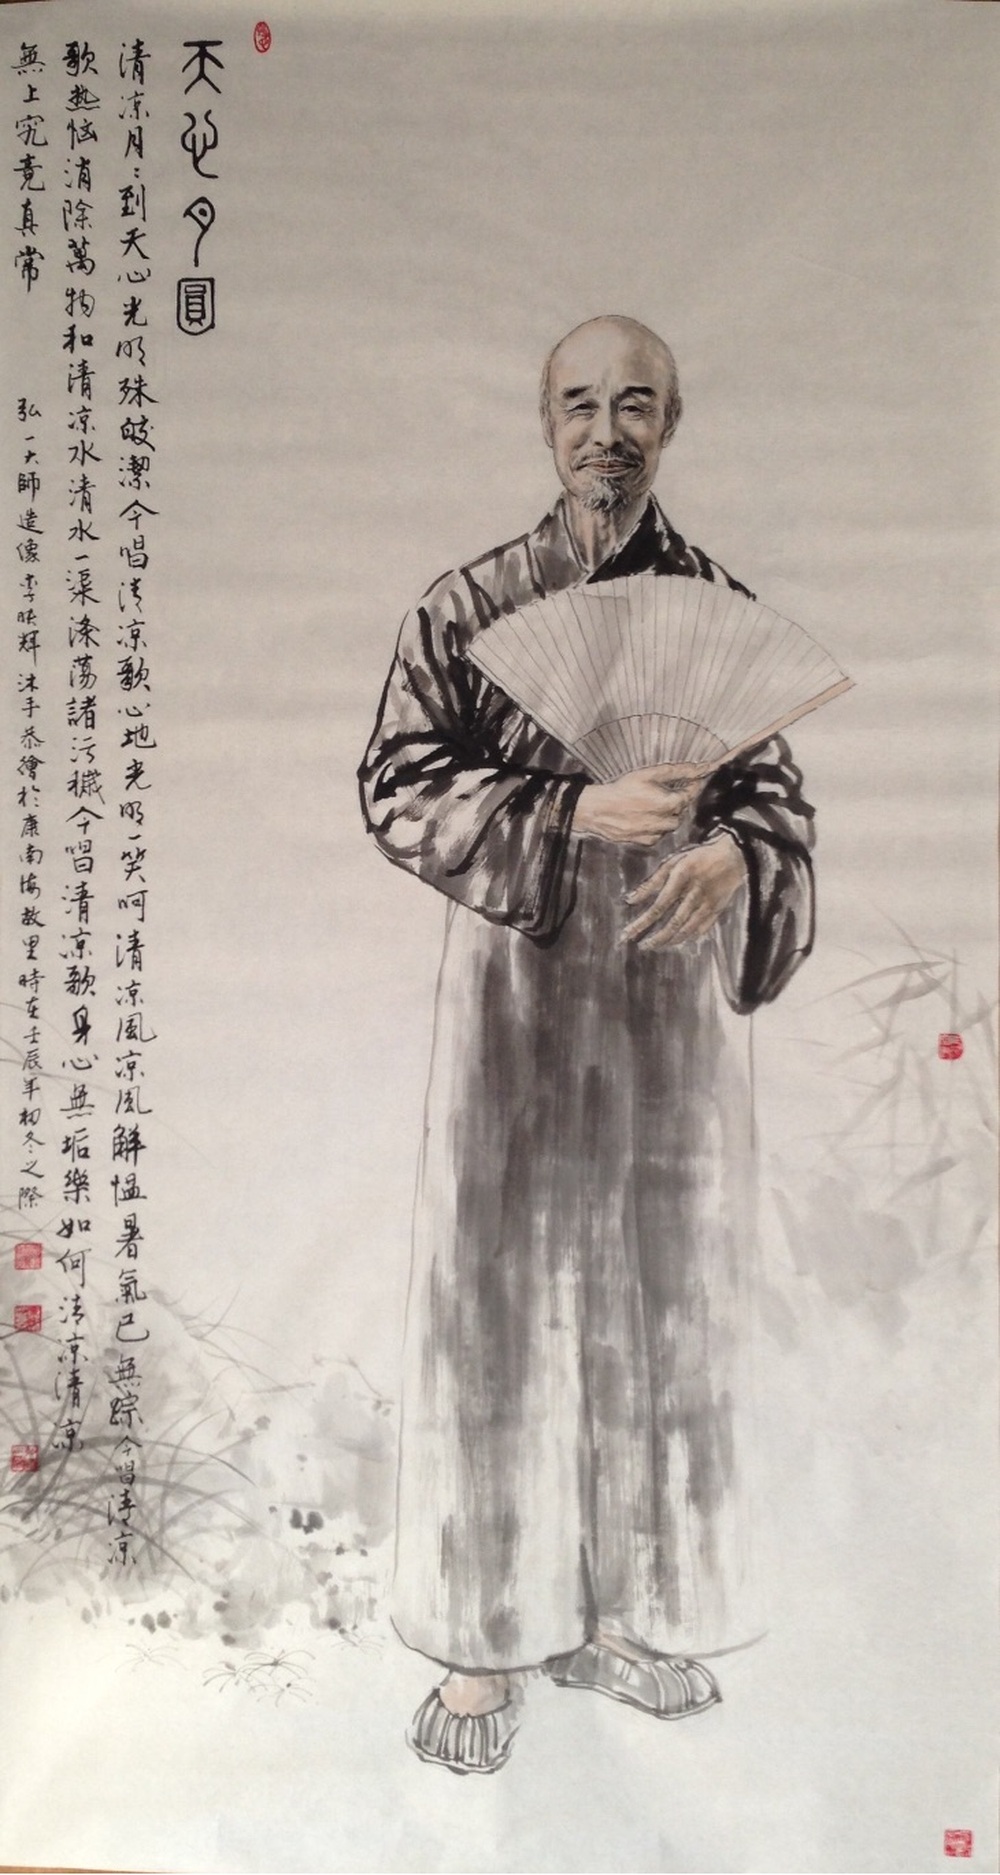 天心月圓
清凉月：到天心光明殊皎潔今唱清凉歌心地光明一笑呵清凉風凉風解愠暑氣已無踪今唱清凉
歌热恼消除萬物和清凉水清水一渠涤荡諸污穢今唱清凉歌身心無垢樂如何清凉清凉
無上究竟真常
弘一大師造像李映輝沐手恭繪於康南海故里時在壬辰年初冬之際